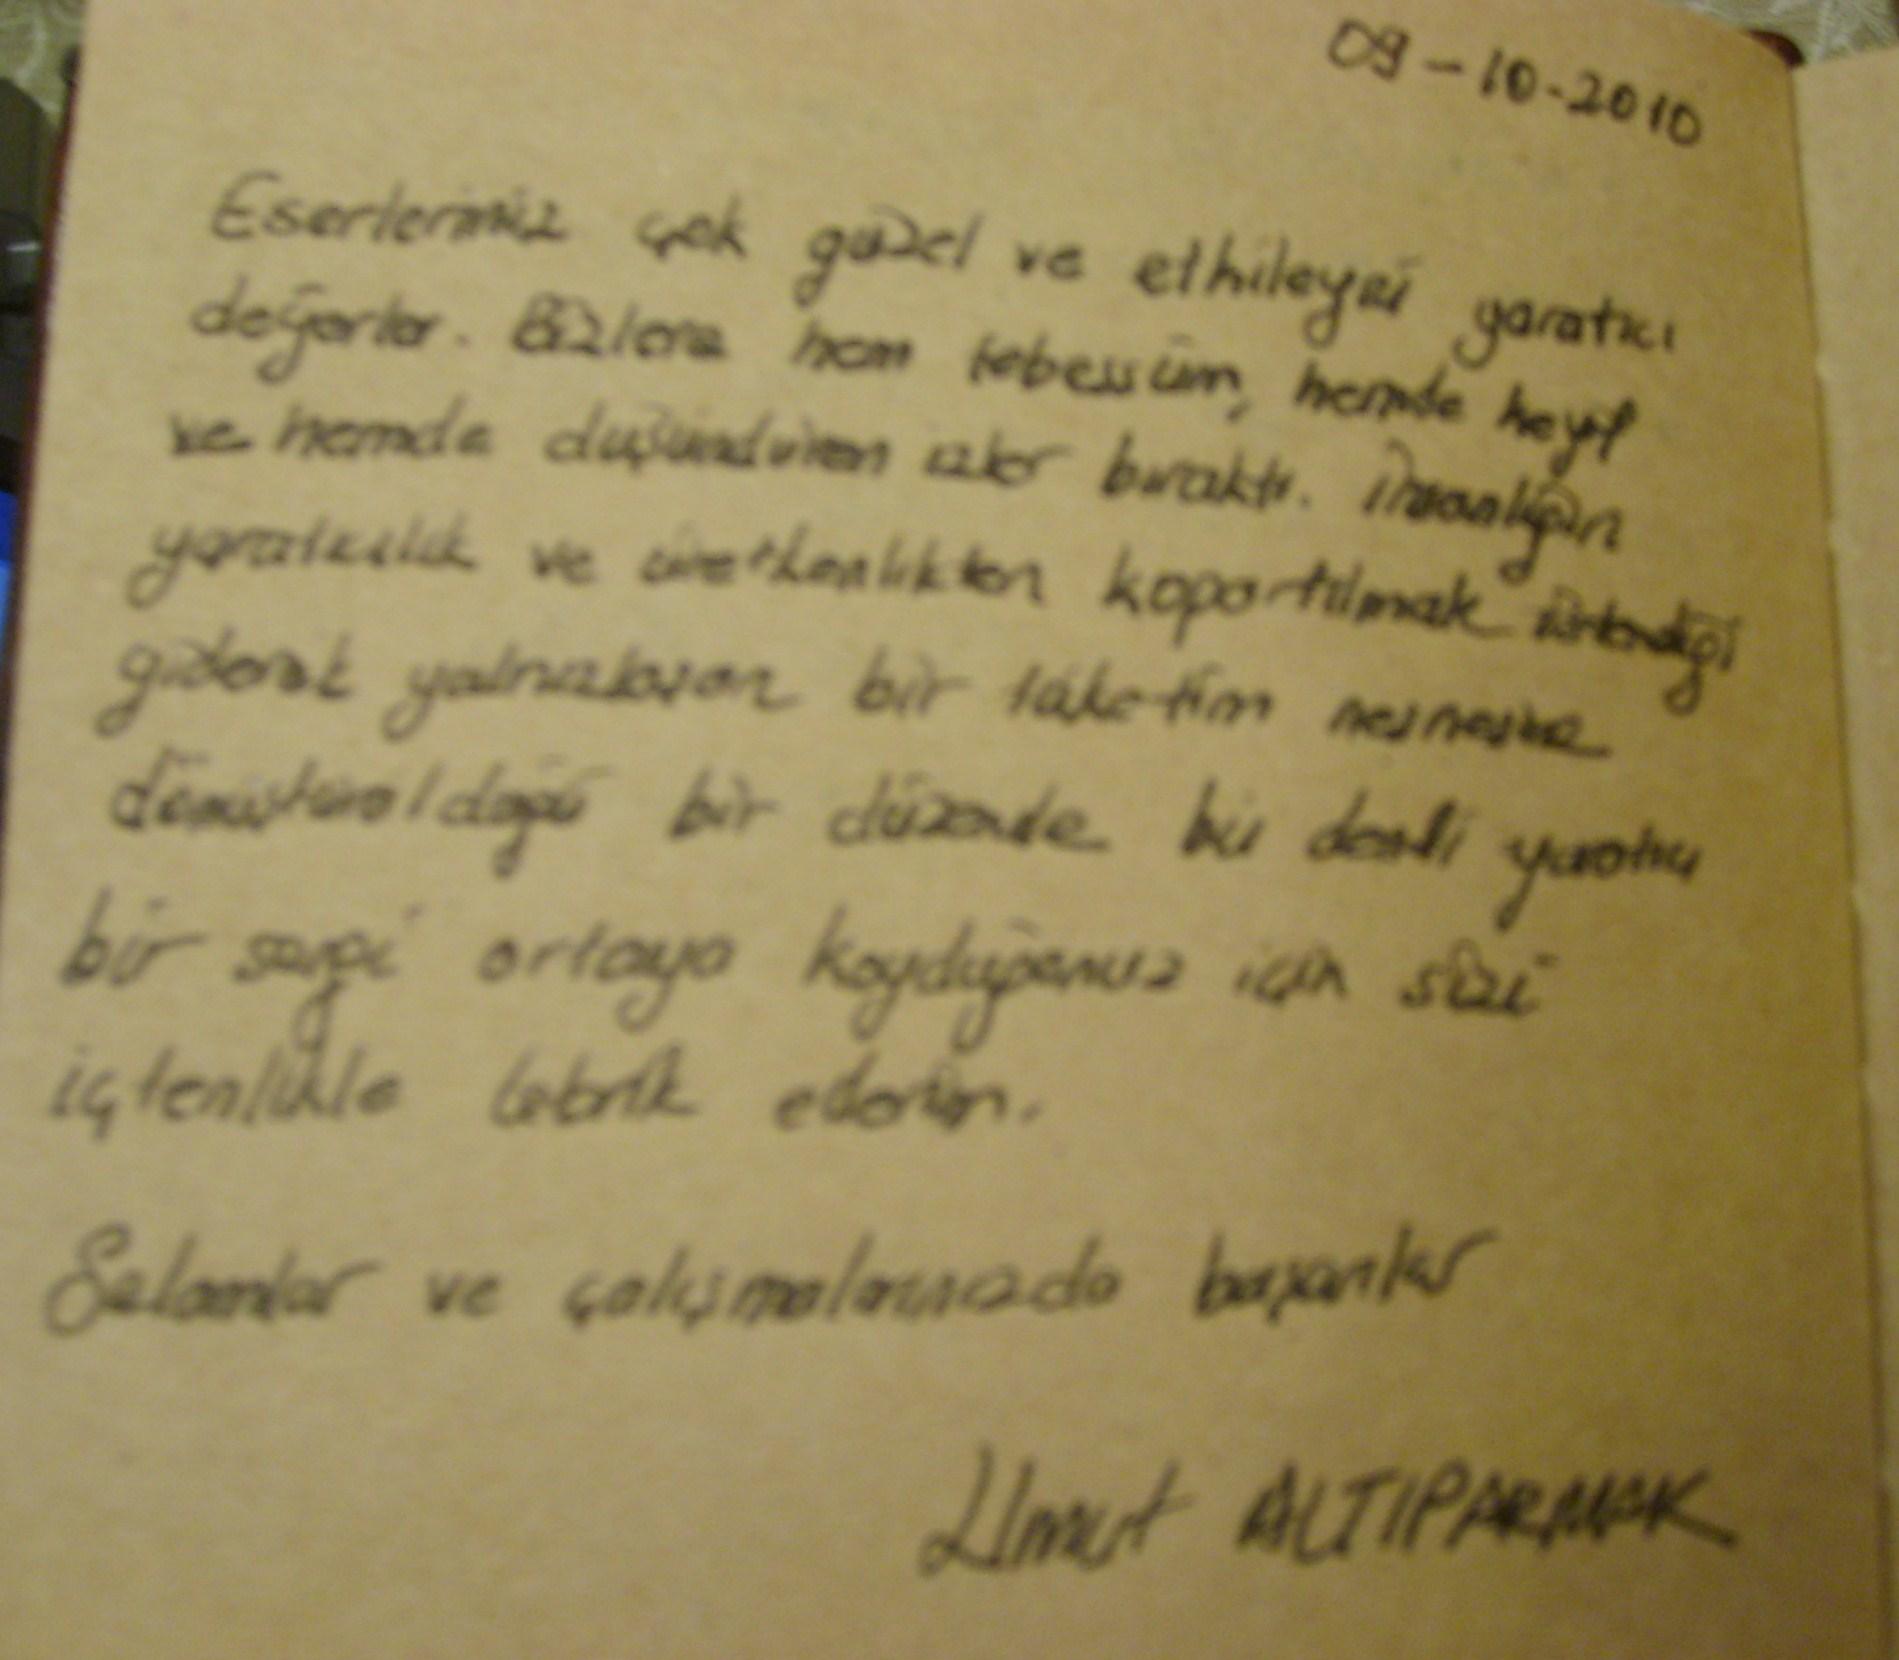 09-10-2010
Eserleriniz çok güzel ve etkileyici yaratıcı
değerler. Bizlere hem tebessüm, hemde keyif
ve hemde düşündüren izler bıraktı. İnsanlığın
yaratıcılık ve üretkenlikten kopartılmak istendiği
giderek yalnızlaşan bir tüketim nesnesine
dönüştürüldüğü bir düzende bu denli yaratıcı
bir sergi ortaya koyduğunuz için sizi
içtenlikle tebrik ederim.
Selamlar ve çalışmalarınızda başarılar
Umut ALTIPARMAK